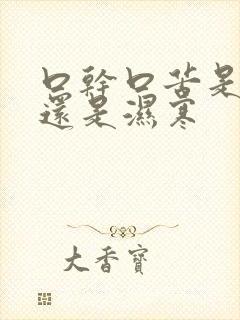 口幹口苦是
還是濕寒
大香寶